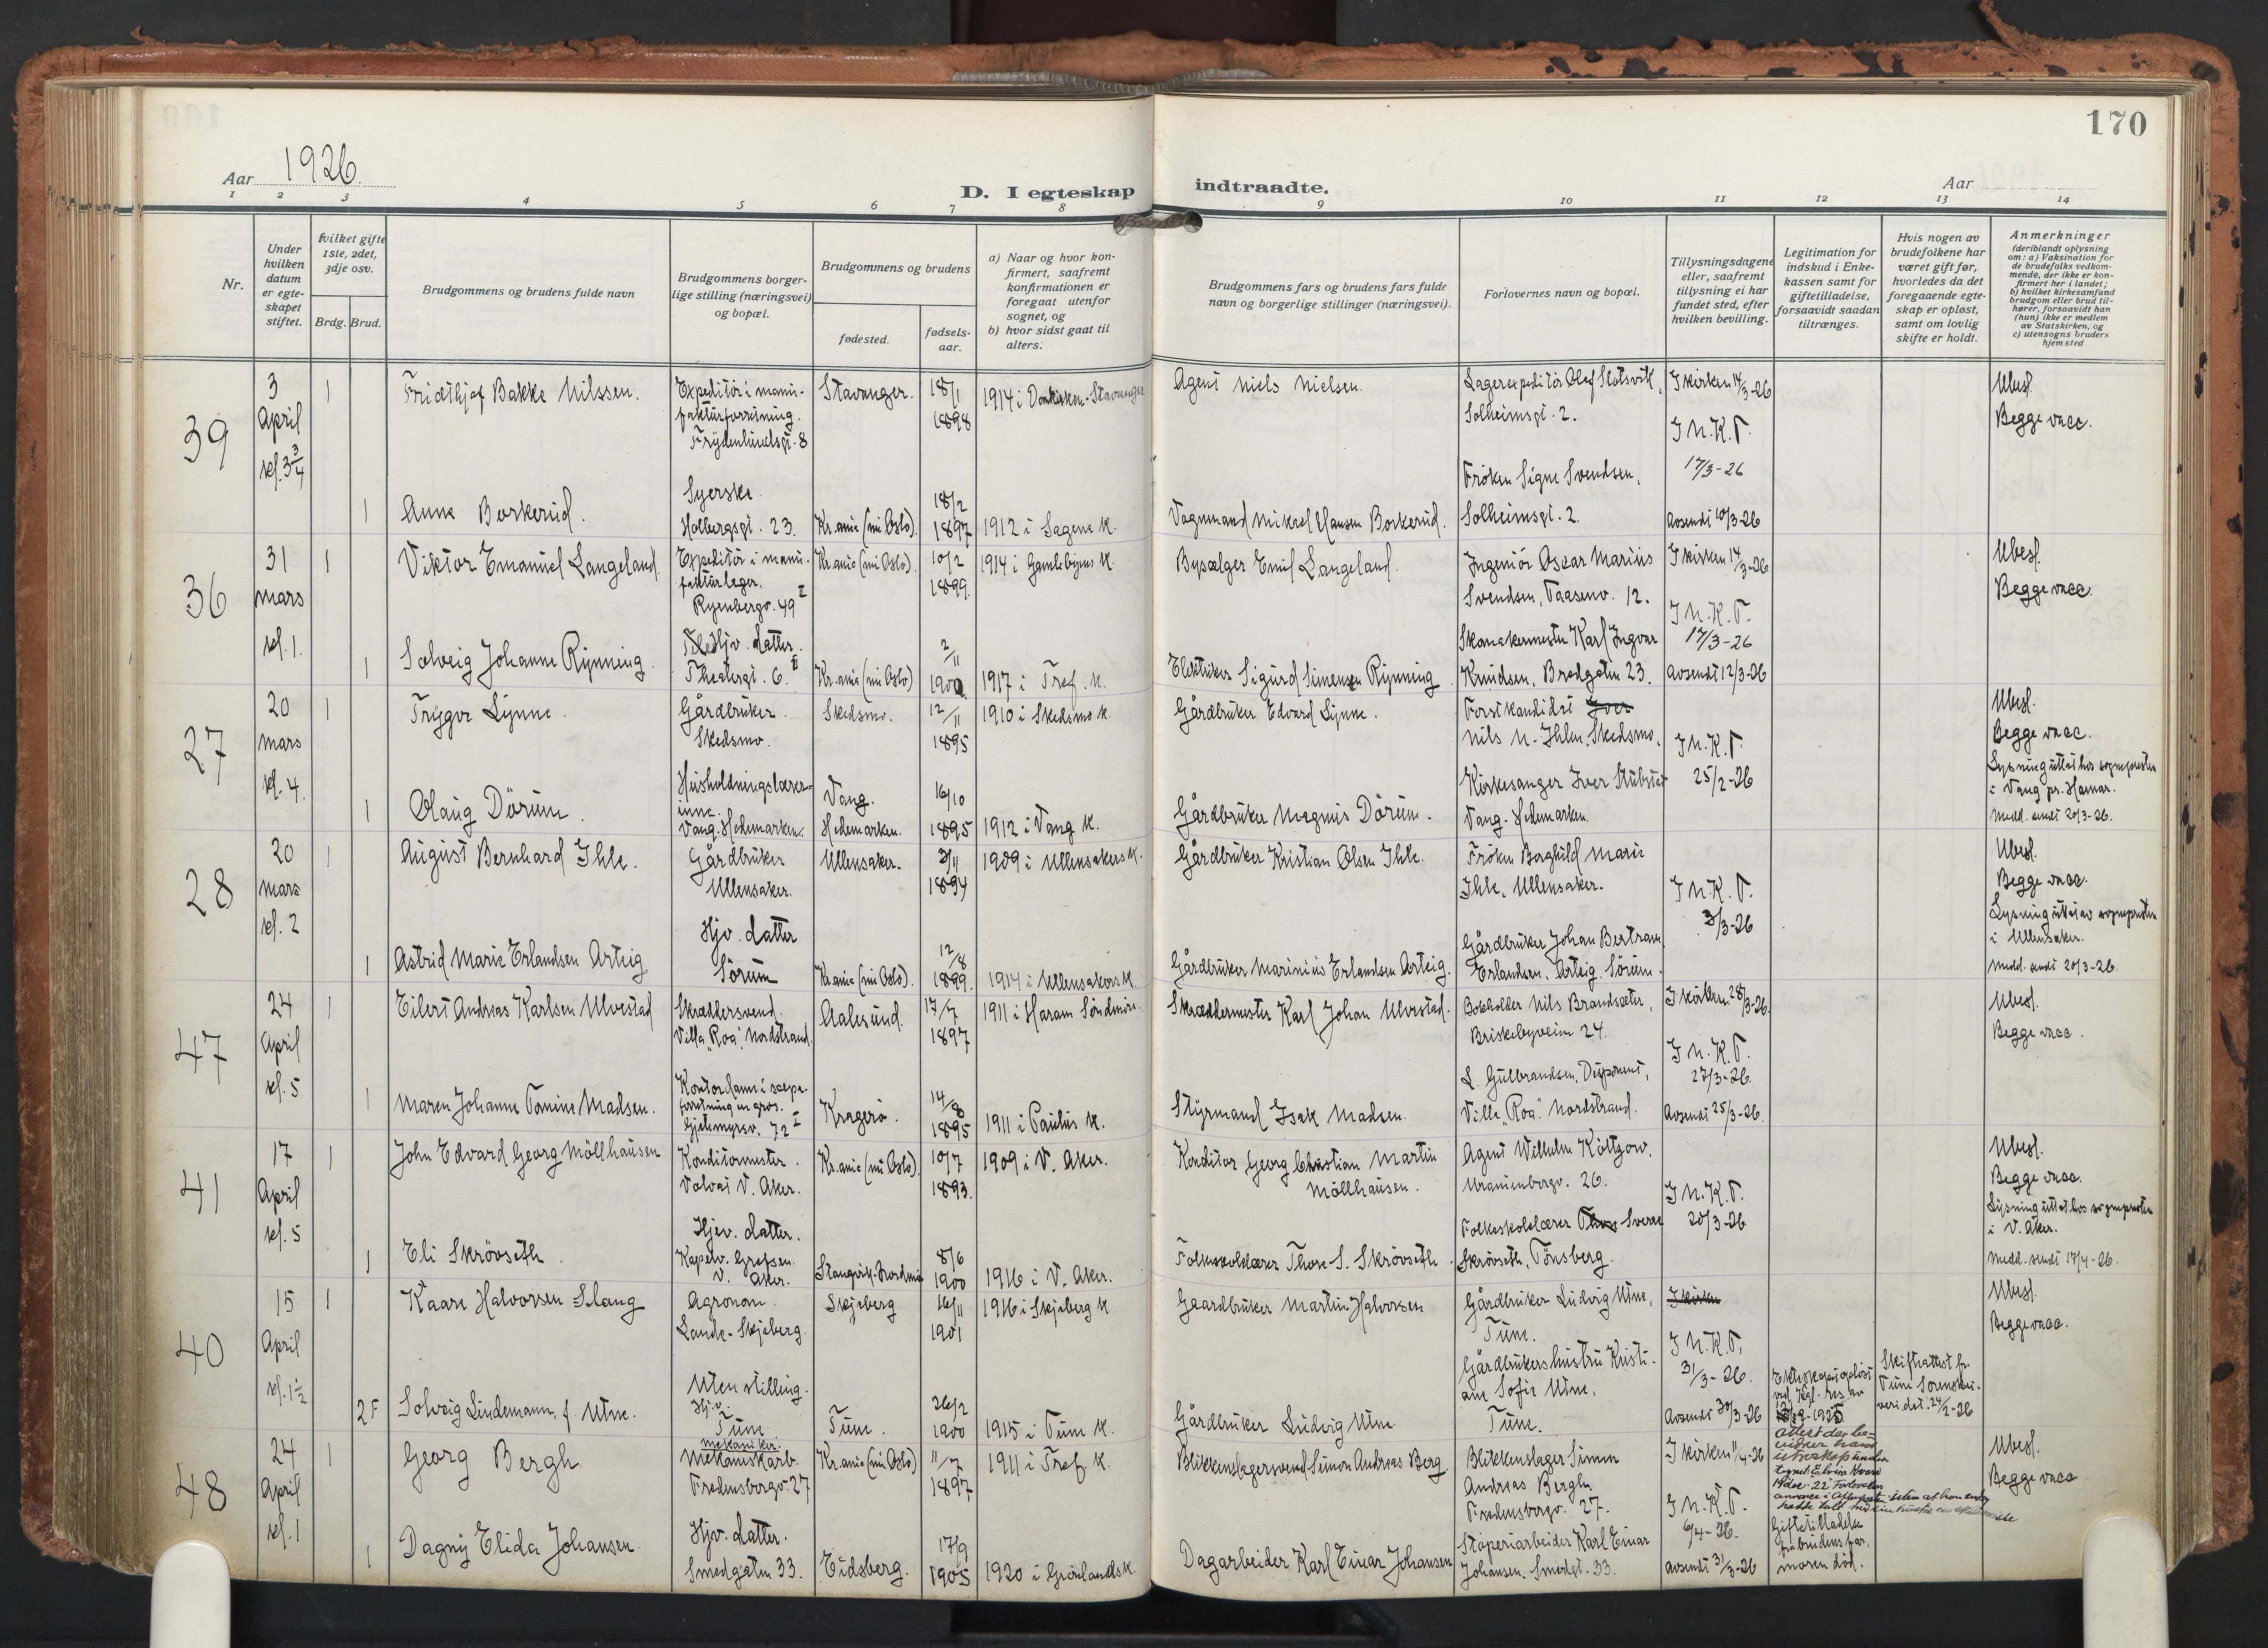 170
Aar 1926.
D. I egteskap indtraadte.
Aar
1 2 3 4 5 6 7 8 9 10 11 12 13 14
Nr.
Under hvilken datum er egteskapet stiftet.
hvilket gifte 1ste, 2det, 3dje osv.
Brdg. Brud.
Brudgommens og brudens fulde navn
Brudgommens borgerlige stilling (næringsvei) og bopæl.
Brudgommens og brudens
fødested.
fødselsaar.
a) Naar og hvor konfirmert, saafremt konfirmationen er foregaat utenfor sognet, og
b) hvor sidst gaat til alters.
Brudgommens fars og brudens fars fulde navn og borgerlige stillinger (næringsvei).
Forlovernes navn og bopæl.
Tillysningsdagene eller, saafremt tillysning ei har fundet sted, efter hvilken bevilling.
Legitimation for indskud i Enkekassen samt for giftetilladelse, forsaavidt saadan tiltrænges.
Hvis nogen av brudefolkene har været gift før, hvorledes da det foregaaende egteskap er opløst, samt om lovlig skifte er holdt.
Anmerkninger
(deriblandt oplysning om: a) Vaksination for de brudefolks vedkommende, der ikke er konfirmert her i landet; b) hvilket kirkesamfund brudgom eller brud tilhører, forsaavidt han (hun) ikke er medlem av Statskirken, og c) utensogns bruders hjemsted
39
3 April kl. 3 3/4
1
Fridthjof Bakke Nilssen.
Expeditör i manufakturforretning.
Frydenlundsgt. 8
Stavanger.
18/11 1898
1914 i Domkirken - Stavanger
Agent Niels Nielsen.
Lagerexpeditör Olaf Slotsvik,
Solheimsgt. 2.
I kirken 14/3-26
I N.K.T.
17/3-26
Ubesl.
Begge vacc.
1
Anna Borkerud.
Syerske
Holbergsgt. 23.
Kr.ania (nu Oslo).
18/2 1897
1912 i Sagene K.
Vognmand Mikael Hansen Borkerud.
Fröken Signe Svendsen,
Solheimsgt. 2.
Avsendt 10/3-26
36
31 mars kl. 1.
1
Viktor Emanuel Langeland.
Expeditör i manufakturlager.
Ryenbergv. 49 I
Kr.ania (nu Oslo).
10/2 1899.
1914 i Gamlebyens K.
Bypælger Emil Langeland.
Ingeniör Oscar Marius
Svendsen, Taasenv. 12.
I kirken 14/3-26
I N.K.T.
17/3-26
Ubesl.
Begge vacc.
1
Solveig Johanne Rynning.
Hjv. datter.
Theatergt. 6.
Kr.ania (nu Oslo)
2/11 1900.
1917 i Tref. K.
Elektriker Sigurd Simensen Rynning
Skomakermester Karl Ingvar
Knudsen, Bredgaten 23.
Avsendt 12/3-26
27
20 mars kl. 4.
1
Trygve Lynne.
Gårdbruker.
Skedsmo.
Skedsmo.
12/11 1895
1910 i Skedsmo K.
Gårdbruker Edvard Lynne.
Forstkandidat
Nils N. Ihlen, Skedsmo.
I N.K.T.
25/2-26
Ubesl.
Begge vacc.
Lysning uttat hos sognepresten
i Vang pr. Hamar.
Medd. sendt 20/3-26.
1
Olaug Dörum.
Husholdningslærerinne.
Vang. Hedemarken.
Vang. Hedemarken.
16/10 1895
1912 i Vang K.
Gårdbruker Magnus Dörum.
Kirkesanger Iver Stubset
Vang - Hedemarken.
28
20 mars kl. 2
1
August Bernhard Ihle.
Gårdbruker
Ullensaker.
Ullensaker.
3/11 1894
1909 i Ullensakers K.
Gårdbruker Kristian Olsen Ihle.
Fröken Borghild Marie
Ihle, Ullensaker.
I N.K.T.
3/3-26
Ubesl.
Begge vacc.
Lysning uttat av sognepresten
i Ullensaker.
Medd. sendt 20/3-26.
1
Astrid Marie Erlandsen Arteig
Hjv. datter
Sörum
Kr.ania (nu Oslo).
12/8 1899.
1914 i Ullensakers K.
Gårdbruker Marinius Erlandsen Arteig.
Gårdbruker Johan Bertram
Erlandsen, Arteig Sörum.
47
24 April kl. 5
1
Eilert Andreas Karlsen Ulvestad
Skræddersvend.
Villa "Roa". Nordstrand.
Aalesund.
17/7 1897
1911 i Haram Söndmöre
Skræddermester Karl Johan Ulvestad.
Bokholder Nils Brandsæter,
Briskebyveien 24.
I kirken 28/3-26.
I N.K.T.
27/3-26.
Ubesl.
Begge vacc.
1
Maren Johanne Tomine Madsen.
Kontordame i sæpeforretning en gros.
Gjetemyrsv. 72 I
Kragerö.
14/8 1895
1911 i Paulus K.
Styrmand Isak Madsen.
L. Gulbrandsen, Disponent,
Villa "Roa". Nordstrand.
Avsendt 25/3-26.
41
17 April kl. 5
1
John Edvard Georg Möllhausen
Konditormester.
Volvat V. Aker.
Kr.ania (nu Oslo).
10/7 1893.
1909 i V. Aker.
Konditor Georg Christian Martin
Möllhausen.
Agent Wilhelm Költzow.
Uranienborgv. 26.
I N.K.T.
20/3-26
Ubesl.
Begge vacc.
Lysning uttat hos sognepresten
i V. Aker.
Medd. sendt 17/4-26.
1
Eli Skrövseth.
Hjv. datter.
Kapelv. Grefsen.
V. Aker.
Stangvik-Nordmöre
8/6 1900
1916 i V. Aker.
Folkeskolelærer Thore S. Skrövseth.
Folkeskolelærer Sverre
Skrövseth, Tönsberg.
40
15 April kl. 1 1/2
1
Kaare Halvorsen Slang
Agronom.
Lande - Skjeberg.
Skjeberg
16/11 1901
1916 i Skjeberg K
Gaardbruker Martin Halvorsen
Gårdbruker Ludvig Utne,
Tune.
I kirken
I N.K.T.
31/3-26.
Ubesl.
Begge vacc.
2 F
Solveig Lindemann, f. Utne.
Uten stilling.
Hjv.
Tune
Tune.
26/2 1900
1915 i Tune K.
Gårdbruker Ludvig Utne.
Gårdbrukers hustru Kristiane Sofie Utne,
Tune.
Avsendt 30/3-26
Ekteskapet oplöst
ved Kgl. res. av
1925
Skifteattest fr.
Tune Sorenskriveri dat. 24/2-26
48
24 April kl. 1
1
Georg Bergh
mekaniker.
Mekanisk arb.
Fredensborgv. 27
Kr.ania (nu Oslo)
11/7 1897
1911 i Tref. K.
Blikkenslagersvend Simon Andreas Berg.
Blikkenslager Simon
Andreas Bergh.
Fredensborgv. 27.
I kirken 11/4-26
I N.K.T.
6/4-26.
Ubesl.
Begge vacc
1
Dagny Elida Johansen.
Hjv. datter.
Smedgaten 33.
Eidsberg.
17/9 1905
1920 i Grönlands K.
Dagarbeider Karl Einar Johansen
Stöperiarbeider Karl Einar
Johansen. Smedgt. 33.
Avsendt 31/3-26
Giftetilladelse
fra brudens far.
moren död.